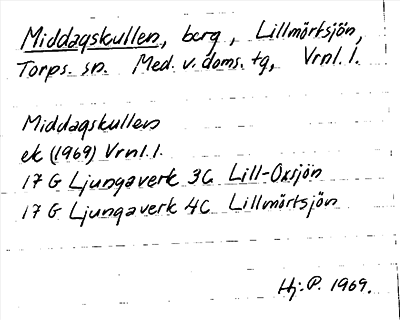 Middagskullen, berg, Lillmörtsjön,
Torps. sn. Med. v. doms. tg, Vrnl. l.
Middagskullen
ek (1969) Vrnl. l.
17 G Ljungaverk 3C Lill-Oxsjön
17 G Ljungaverk 4C Lillmörtsjön
Hj. P. 1969.